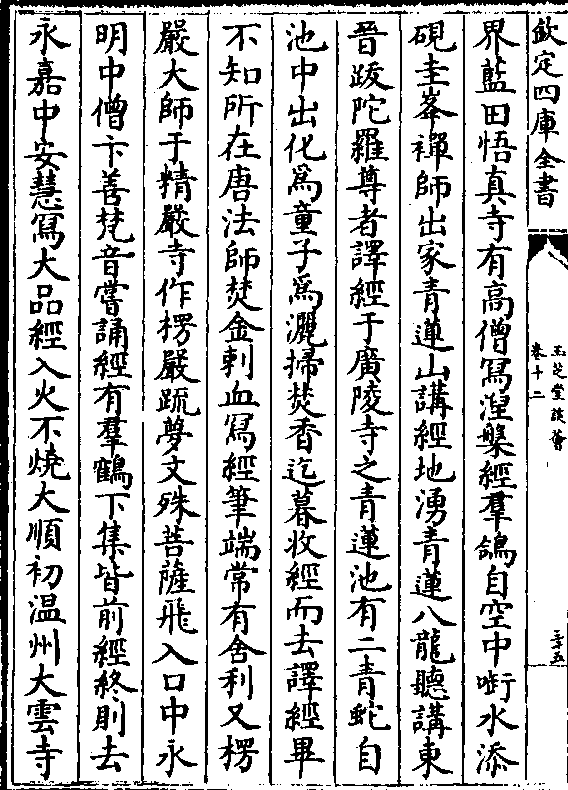 欽定四庫全書
玉芝堂談薈
卷十二
三十五
界藍田悟真寺有高僧寫涅槃經羣鴿自空中啣水添
硯圭峯禪師出家青蓮山講經地湧青蓮八龍聽講東
晉跋陀羅尊者譯經于廣陵寺之青蓮池有二青蛇自
池中出化為童子為灑掃焚香迄暮收經而去譯經畢
不知所在唐法師焚金刺血寫經筆端常有舍利又楞
嚴大師于精嚴寺作楞嚴疏夢文殊菩薩飛入口中永
明中僧卞善梵音嘗誦經有羣鶴下集皆前經終則去
永嘉中安慧寫大品經入火不燒大順初温州大雲寺